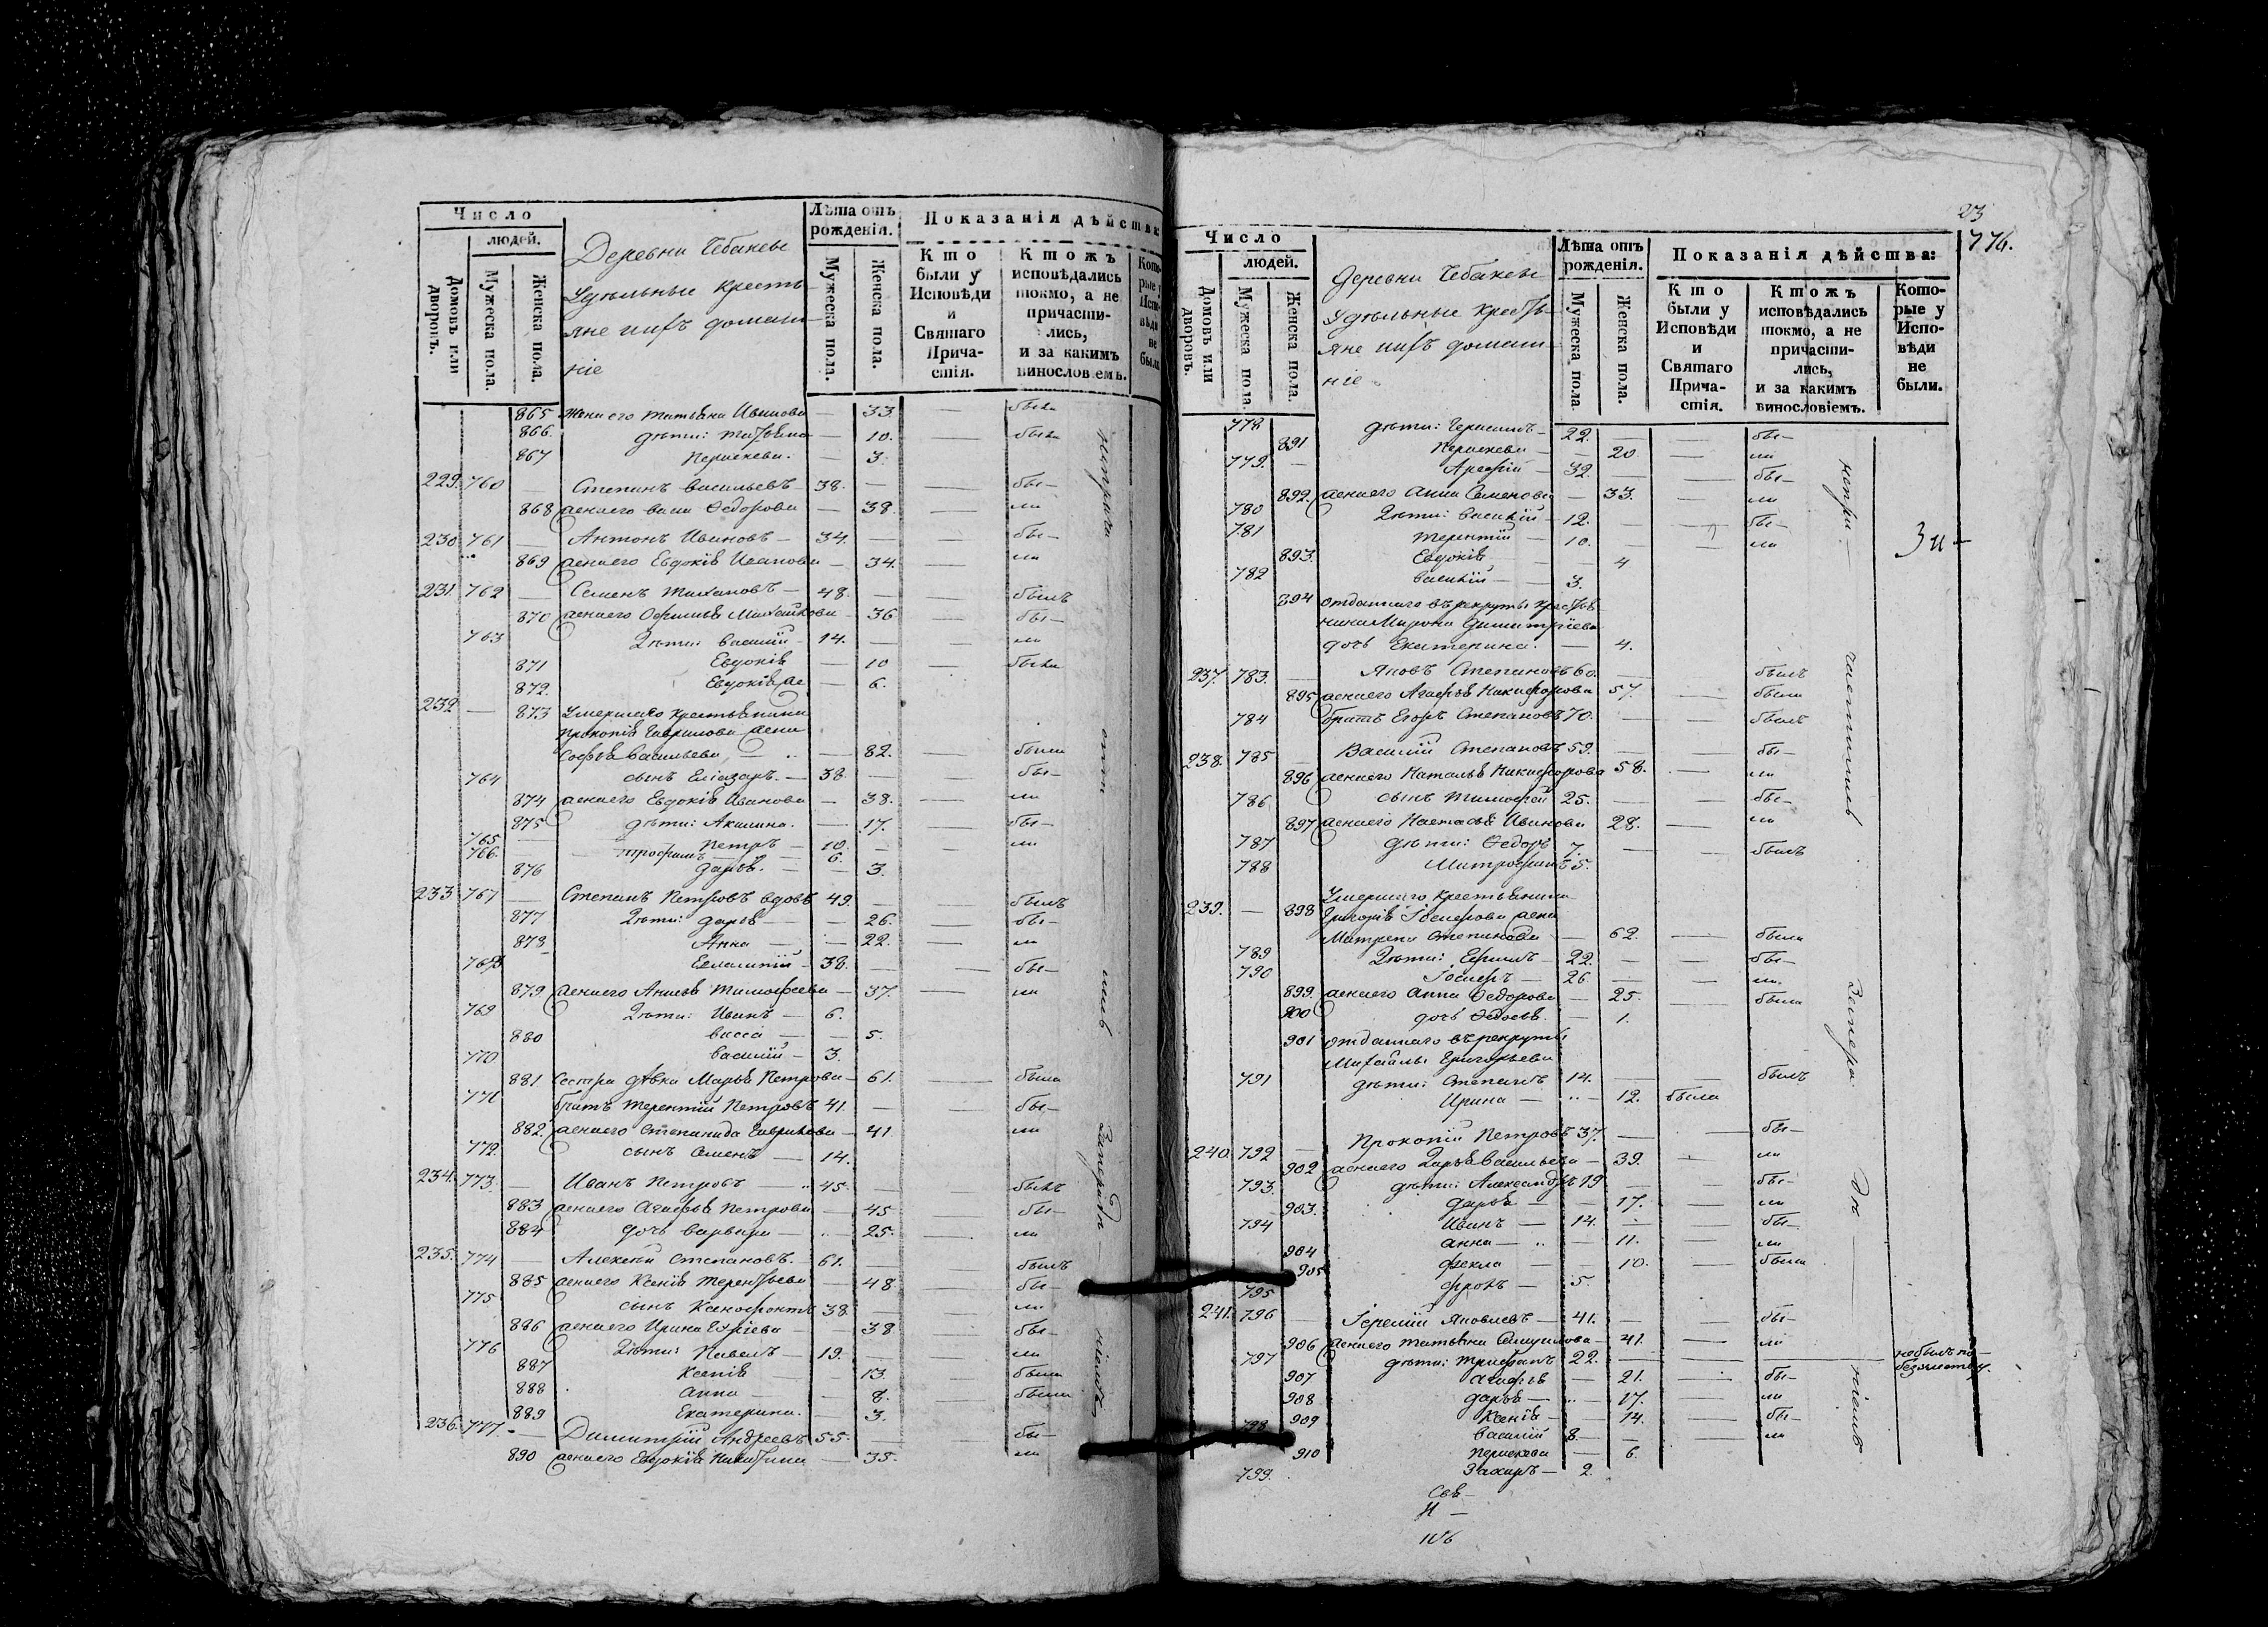 Число
людей.
Домовъ или дворовъ.
Мужеска пола.
Женска пола.
Деревни Чебаксы
Удѣльные кресть-
яне и ихъ домаш-
ніе
Лѣта отъ рожденія.
Мужеска пола.
Женска пола.
Показанія дѣйства:
Кто были у Исповѣди и Святаго Причастія.
Ктожъ исповѣдались токмо, а не причасти-лись, и за какимъ винословіемъ.
865 жена его Татьяна Иванова — 33. — была
866. дѣти: — 10. — была
867 Параскева. — 3.
229. 760 — Степанъ Васильевъ — 38. — бы-
868 жена его Ѳедорова — 38. — ли
230 761 — Антонъ Ивановъ — 34. — бы-
869 жена его Евдокія Иванова — 34. — ли
231. 762 — Семенъ — 48. — былъ
870 жена его Михайлова — 36 — бы-
763 Дѣти: Василій — 14. — ли
871 Евдокія — 10 — была
872. Евдокія же — 6.
232 — 873 Умершаго крестьянина
Прокопія Гаврилова жена
Софья Васильева — 82. — была
764 сынъ Еліазаръ. — 38. — бы-
874 жена его Евдокія Иванова — 38. — ли
875 дѣти: Акилина. — 17. — бы-
765 — Петръ — 10. — ли
766. Трофимъ — 6.
876 Дарья. — 3.
233 767 — Степанъ Петровъ вдовъ 49. — былъ
877 Дѣти: Дарья — 26. — бы-
878 Анна — 22. — ли
768 Евлампій — 38. — бы-
879. жена его Анисья Тимофеева — 37. — ли
769 Дѣти: Иванъ — 6.
880 Васса — 5.
770 Василій — 3.
881 Сестра дѣвка Марья Петрова — 61. — была
771 братъ Терентій Петровъ 41. — бы-
882. жена его Степанида Гаврилова — 41 ли
772. сынъ Семенъ — 14.
234. 773. — Иванъ Петровъ — 45. — былъ
883 жена его Агафья Петрова — 45 — бы-
884 дочь Варвара — 25. — ли
235. 774 — Алексѣй Степановъ. 61. — былъ
885 жена его Ксенія Терентьева — 48 — бы-
775 сынъ Ксенофонтъ 38. — ли
886 жена его Ирина — 38 — бы-
776 Дѣти: Павелъ — 19. — ли
887 Ксенія — 13. — была
888 Анна — 8. — была
889 Екатерина. — 3.
236. 777. — Димитрій Андреевъ 55. — бы-
890 жена его Евдокія Никитина — 35. — ли
23
776.
Число
людей.
Домовъ или дворовъ.
Мужеска пола.
Женска пола.
Деревни Чебаксы
Удѣльные кресть-
яне и ихъ домаш-
ніе
Лѣта отъ рожденія.
Мужеска пола.
Женска пола.
Показанія дѣйства:
Кто были у Исповѣди и Святаго Причастія.
Ктожъ исповѣдались токмо, а не причасти-лись, и за какимъ винословіемъ.
Кото-рые у Испо-вѣди не были.
778 дѣти: Герасимъ — 22. — бы-
891 Параскева — 20. — ли
779. — Арефій — 32. — бы-
892. жена его Анна Семенова — 33. — ли
780 Дѣти: Василій — 12. — бы-
781 Терентій — 10. — ли
893. Евдокія — 4
782 Василій — 3.
894 отданнаго въ рекруты кресть-
янина Мирона Димитріева
дочь Екатерина. — 4.
237. 783. — Яковъ Степановъ 60. — былъ
895 жена его Агафья Никифорова 57. — была
784 братъ Егоръ Степановъ 70. — былъ
238. 785 — Василій Степановъ 59. — бы-
896 жена его Наталья Никифорова 58. — ли
786 сынъ Тимофей 25. — бы-
897 жена его Настасья Иванова 28. — ли
787 дѣти: Ѳедоръ 7. — былъ
788 Митрофанъ 5.
Умершаго крестьянина
239. — 898 Григорія Іосифова жена
Матрена Степанова — 62. — была
789 Дѣти: Ефимъ — 22. — бы-
790 Іосифъ — 26. — ли.
899. жена его Анна Ѳедорова — 25. — была
900 дочь Ѳедосья. — 1.
901 отданнаго въ рекруты
Михайлы Григорьева
791 дѣти: Степанъ 14. — былъ
Ирина — 12. была
240. 792 — Прокопій Петровъ 37. — бы-
902 жена его Дарья Васильева — 39. — ли
793. дѣти: Александръ 19 — бы-
903. Дарья — 17. — ли
794 Иванъ — 14. — бы-
904 Анна — 11. — ли
905 Фекла — 10. — была
795 Фролъ — 5.
241. 796 — Іеремій Яковлевъ — 41. — бы-
906 жена его Татьяна Самуилова — 41. — ли
797 дѣти: Трифанъ 22. — не былъ по
907 Агафья — 21. — бы-
908 Дарья — 17. — ли
909 Ксенія — 14. — бы-
798 Василій 8. — ли
910 Параскева — 6.
799. Захаръ — 2.